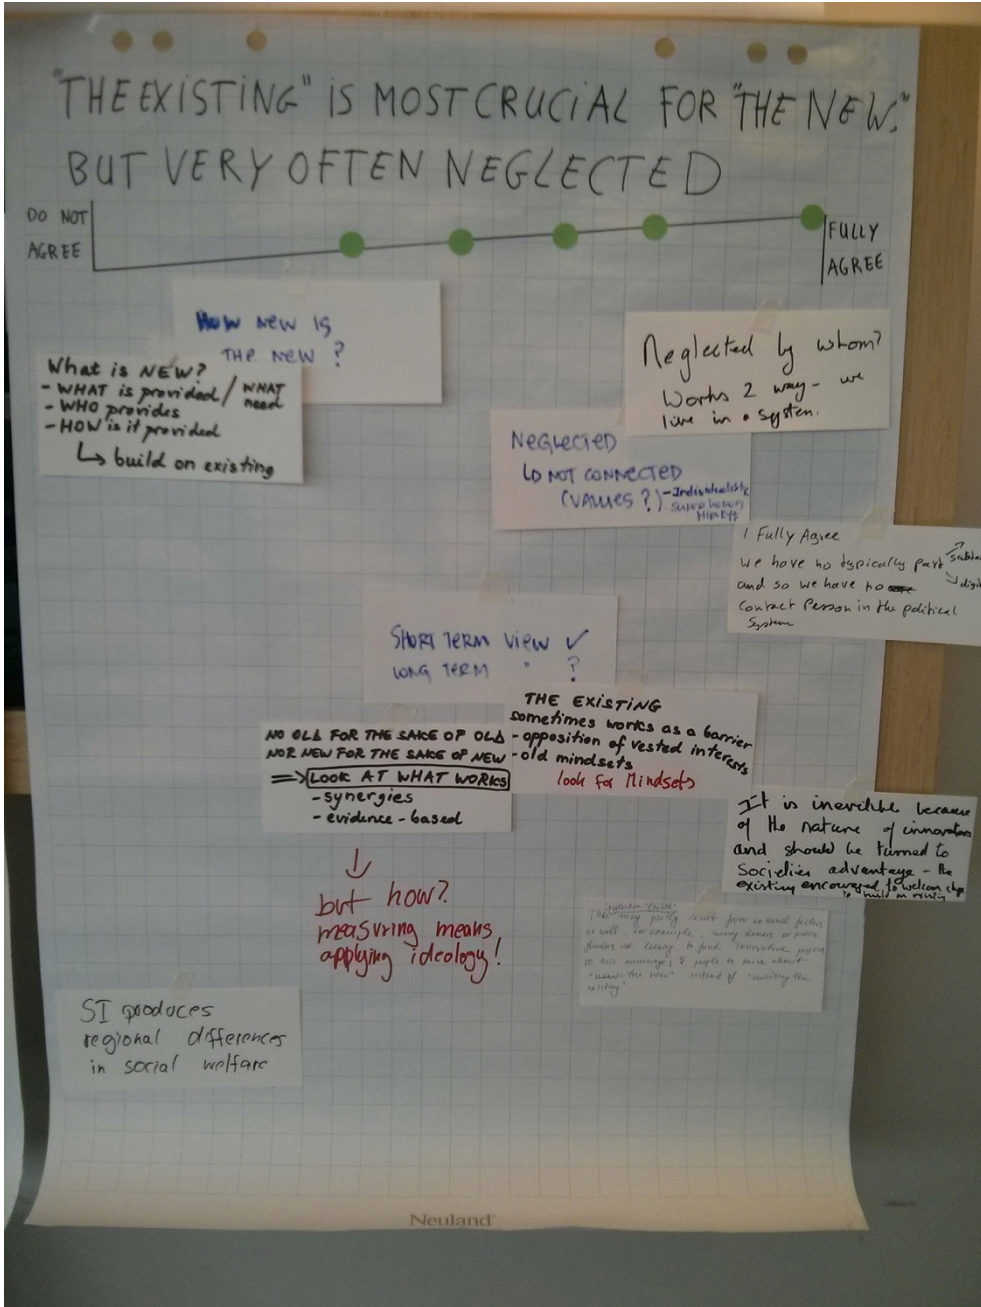 "THE EXISTING" IS MOST CRUCIAL FOR "THE NEW."
BUT VERY OFTEN NEGLECTED
DO NOT
AGREE
FULLY
AGREE
HOW NEW IS
THE NEW ?
What is NEW?
- WHAT is provided / WHAT need
- WHO provides
- HOW is it provided
↳ build on existing
Neglected by whom?
Works 2 way - we
live in a system.
NEGLECTED
↳ NOT CONNECTED
(VALUES ?) - Individualistic
I Fully Agree
we have no typically part
and so we have no
contact Person in the political
System
SHORT TERM VIEW ✓
LONG TERM " ?
THE EXISTING
sometimes works as a barrier
- opposition of vested interests
- old mindsets
look for Mindsets
NO OLD FOR THE SAKE OF OLD
NOR NEW FOR THE SAKE OF NEW
⇒ LOOK AT WHAT WORKS
- synergies
- evidence-based
↓
but how?
measuring means
applying ideology!
It is inevitible because
of the nature of innovators
and should be turned to
Societies advantage - the
existing encouraged to welcom
to build on existing
This may partly result from external factors
as well. For example, many donors or public
funders are looking to fund innovative projects
so this encourages people to
"about the new" instead of
existing"
SI produces
regional differences
in social welfare
Neuland